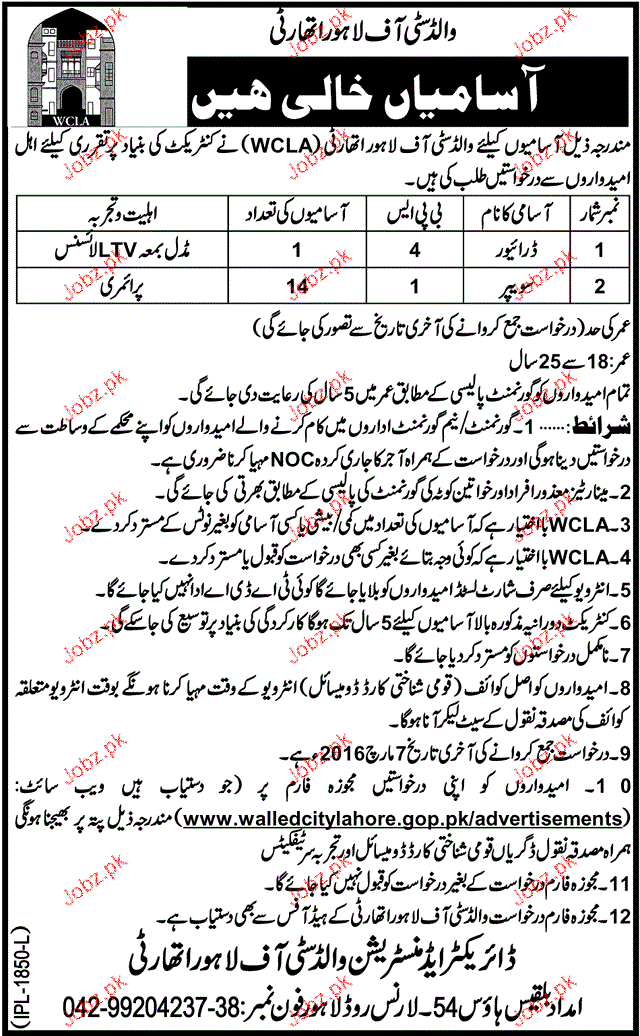 والڈ سٹی آف لاہور اتھارٹی
WCLA
آسامیاں خالی ھیں
مندرجہ ذیل آسامیوں کیلئے والڈ سٹی آف لاہور اتھارٹی (WCLA) نے کنٹریکٹ کی بنیاد پر تقرری کیلئے اہل
امیدواروں سے درخواستیں طلب کی ہیں۔
نمبر شمار آسامی کا نام بی پی ایس آسامیوں کی تعداد اہلیت و تجربہ
1 ڈرائیور 4 1 مڈل بمعہ LTV لائسنس
2 سویپر 1 14 پرائمری
عمر کی حد (درخواست جمع کروانے کی آخری تاریخ سے تصور کی جائے گی)
عمر: 18 سے 25 سال
تمام امیدواروں کو گورنمنٹ پالیسی کے مطابق عمر میں 5 سال کی رعایت دی جائے گی۔
شرائط: ...... 1۔ گورنمنٹ/نیم گورنمنٹ اداروں میں کام کرنے والے امیدواروں کو اپنے محکمے کے وساطت سے
درخواستیں دینا ہوگی اور درخواست کے ہمراہ آجر کا جاری کردہ NOC مہیا کرنا ضروری ہے۔
2۔ مینارٹیز معذور افراد اور خواتین کوٹہ کی گورنمنٹ کی پالیسی کے مطابق بھرتی کی جائے گی۔
3۔ WCLA بااختیار ہے کہ آسامیوں کی تعداد میں کمی/بیشی یا کسی آسامی کو بغیر نوٹس کے مسترد کردے۔
4۔ WCLA بااختیار ہے کہ کوئی وجہ بتائے بغیر کسی بھی درخواست کو قبول یا مسترد کردے۔
5۔ انٹرویو کیلئے صرف شارٹ لسٹڈ امیدواروں کو بلایا جائے گا کوئی ٹی اے ڈی اے ادا نہیں کیا جائے گا۔
6۔ کنٹریکٹ دورانیہ مذکورہ بالا آسامیوں کیلئے 5 سال تک ہوگا کارکردگی کی بنیاد پر توسیع کی جاسکے گی۔
7۔ نامکمل درخواستوں کو مسترد کردیا جائے گا۔
8۔ امیدواروں کو اصل کوائف (قومی شناختی کارڈ ڈومیسائل) انٹرویو کے وقت مہیا کرنا ہونگے بوقت انٹرویو متعلقہ
کوائف کی مصدقہ نقول کے سیٹ لیکر آنا ہوگا۔
9۔ درخواست جمع کروانے کی آخری تاریخ 7 مارچ 2016ء ہے۔
10۔ امیدواروں کو اپنی درخواستیں مجوزہ فارم پر (جو دستیاب ہیں ویب سائٹ:
www.walledcitylahore.gop.pk/advertisements) مندرجہ ذیل پتہ پر بھیجنا ہونگی
ہمراہ مصدقہ نقول ڈگریاں قومی شناختی کارڈ ڈومیسائل اور تجربہ سرٹیفکیٹس
11۔ مجوزہ فارم درخواست کے بغیر درخواست کو قبول نہیں کیا جائے گا۔
12۔ مجوزہ فارم درخواست والڈ سٹی آف لاہور اتھارٹی کے ہیڈ آفس سے بھی دستیاب ہے۔
ڈائریکٹر ایڈمنسٹریشن والڈ سٹی آف لاہور اتھارٹی
امداد بلقیس ہاؤس 54۔ لارنس روڈ لاہور فون نمبر: 042-99204237-38
(IPL-1850-L)
Jobz.pk